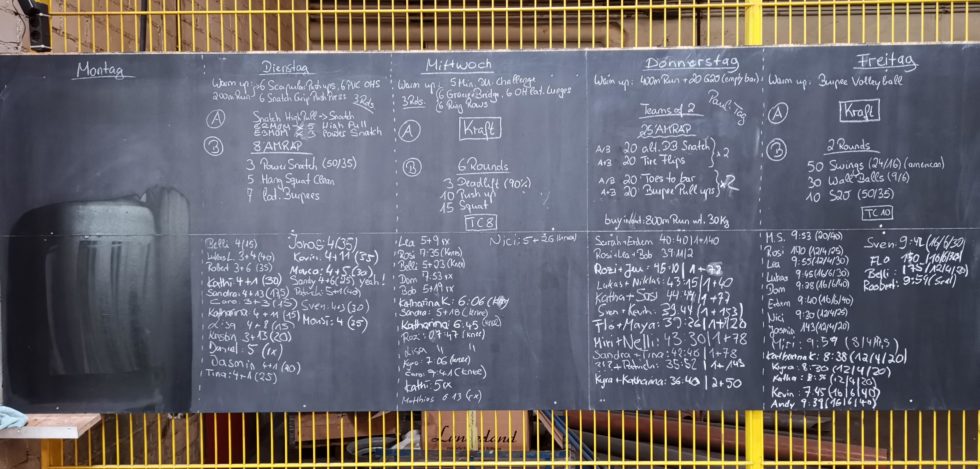 Montag
Dienstag
Warm up: 6 Scapular Push ups, 6 PVC OHS
200m Run 6 Snatch Grip Push Press 3 Rds
A
Snatch High Pull -> Snatch
E2MOM x 5 High Pull
E3MOM x 3 Power Snatch
B
8 AMRAP
3 Power Snatch (50/35)
5 Hang Squat Clean
7 lat. Burpees
Belli 4 (15)
Lukas L. 3+4 (40)
Robert 3+6 (35)
Kathi 4+1 (30)
Sandra: 4+13 (15)
Caro: 3+3 (15)
Katharina 4+11 (15)
4+8 (15)
Kristin 3+13 (25)
5 (rx)
Jasmin 4+1 (40)
Tina: 4+1 (25)
Jonas: 4 (35)
Kevin: 4+11 (35)
4+5 (30)
Sandy 4+6 (25) yeah!
Patrick: 5+1 (40)
Sven: 4+3 (30)
4 (25)
Mittwoch
Warm up: 5 Min. Challenge
3 Rds. 6 Bridge, 6 OH lat. Lunges
6 Ring Rows
A
Kraft
B
6 Rounds
3 Deadlift (90%)
10 Push up
15 Squat
TC 8
Nici: 5+26 (knee)
Lea 5+9 rx
Rosi 7:35 (knee)
Belli 5+23 (knee)
Dom 7:53 rx
Bob 5+19 rx
Katharina K: 6:06
Sandra: 5+18 (knee)
Katharina 6:45
7:47 (knee)
Lisa " "
Kyra 7:06 (knee)
Caro: 4:41 (knee)
Kathi: 5 rx
Matthias 6:13 (rx)
Donnerstag
Warm up: 400m Run + 20 G2O (empty bar)
Pauli Tag
Teams of 2
25' AMRAP
A/B 20 alt. DB Snatch
A+B 20 Tire Flips x2
A/B 20 Toes to bar
A+B 20 Burpee Pull ups x2
buy in/out: 800m Run wt. 30 Kg
Sarah+Erdem 40:40 | 1+140
Rosi+Lea+Bob 39:11 | 2
45:10 | 1+72
Lukas+Niklas: 43:15 | 1+40
Katha+Susi 44:44 | 1+77
Sven+Kevin: 39:44 (1+153)
Flo+Maya: 39:26 | 1+120
Miri+Nelli: 43:30 | 1+78
Sandra+Tina: 42:46 | 1+78
35:52 | 1+143
Kyra+Katharina: 36:49 | 2+50
Freitag
Warm up: Burpee Volleyball
A
Kraft
B
2 Rounds
50 Swings (24/16) (american)
30 Wall Balls (9/6)
10 S2O (50/35)
TC 10
M.S. 9:53 (20/40)
Rosi 170 (12/4/25)
Lea 9:55 (12/4/30)
Lukas 9:45 (16/6/30)
Dom 9:38 (16/6/40)
Erdem 9:40 (16/6/40)
Nici 9:20 (12/4/25)
Jasmin 143 (12/4/20)
Miri: 9:59 (8/4/15)
Katharina K: 8:38 (12/4/20)
Kyra: 8:20 (12/4/20)
Katha: 8:35 (12/4/20)
Kevin: 7:45 (16/6/40)
Andy 9:39 (16/6/40)
Sven: 9:42 (16/6/30)
FLO 150 (16/6/30)
Belli: 175 (12/4/30)
Robert: 9:54